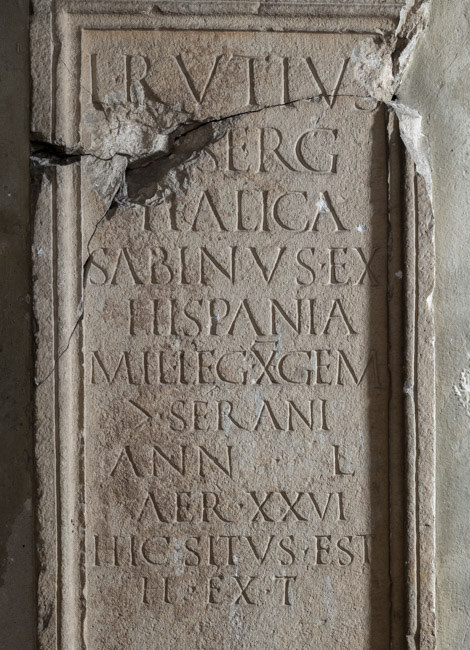 L·RVTIVS
SERG
ITALICA
SABINVS·EX
HISPANIA
MIL·LEG·X·GEM
>·SERANI
ANN · L
AER·XXVI
HIC·SITVS·EST
H·EX·T